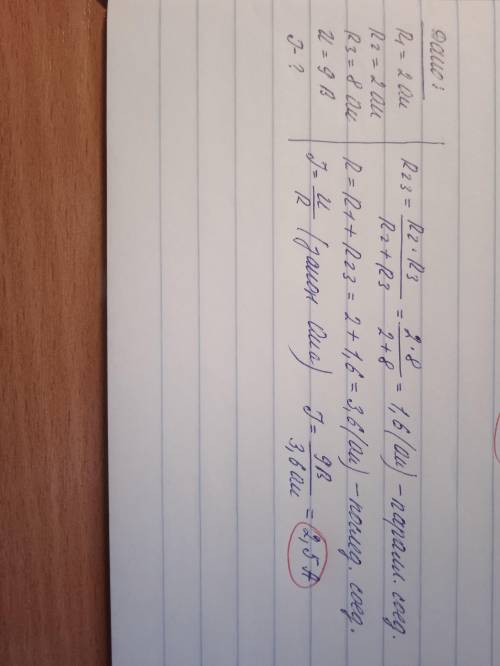 Дано:
R1 = 2 Ом
R2 = 2 Ом
R3 = 8 Ом
U = 9 В
J - ?
R23 = R2 · R3 / R2 + R3 = 2 · 8 / 2 + 8 = 1,6 (Ом) - паралл. соед.
R = R1 + R23 = 2 + 1,6 = 3,6 (Ом) - послед. соед.
J = U / R (закон Ома) J = 9В / 3,6 Ом = 2,5 А